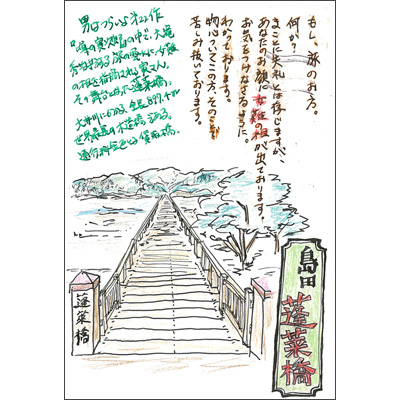 もし、旅のお方。
何か?
まことに失礼とは存じますが、
あなたのお顔に女難の相が出ております。
お気をつけなさるように。
わかっております。
物心ついてこの方、そのことで
苦しみ抜いております。
男はつらいよ第22作
「噂の寅次郎」の中で、大滝
秀治扮する旅の雲水に女難
の相を指摘される寅さん。
その舞台となった蓬莱橋。
大井川にかかる全長897.4m
世界最長の木造橋である。
通行料金をとる賃取橋。
島田
蓬莱橋
蓬莱橋